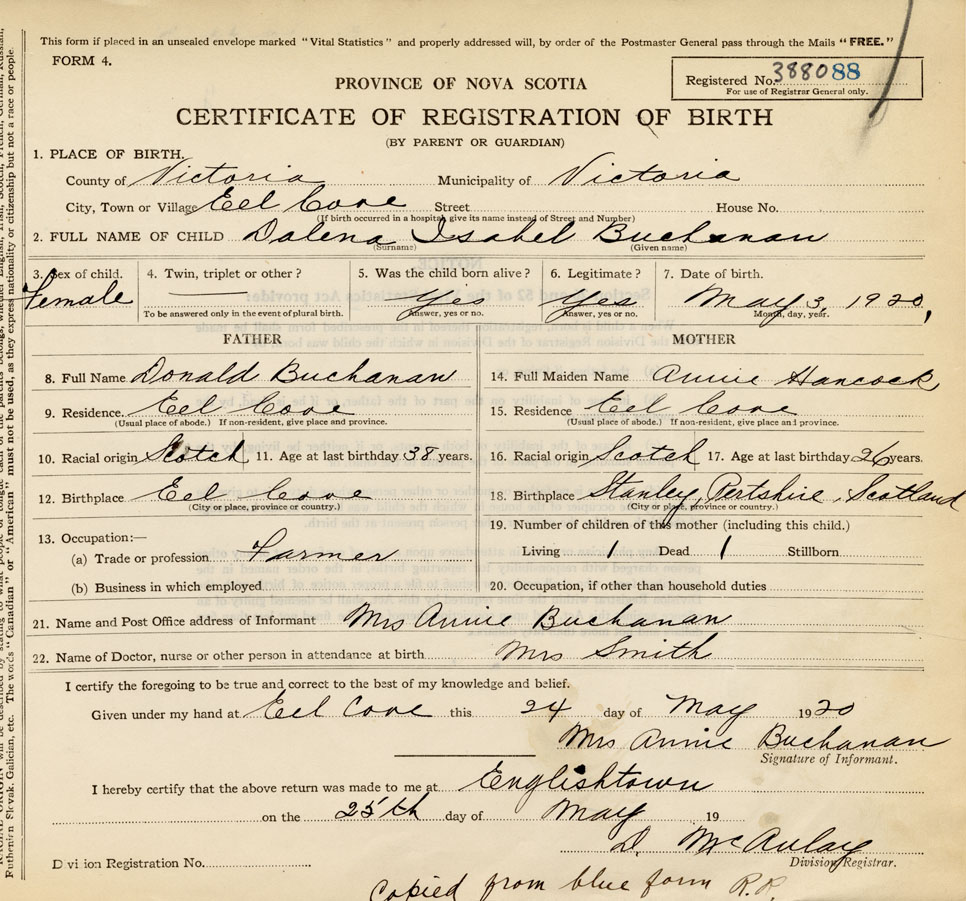 This form if placed in an unsealed envelope marked "Vital Statistics" and properly addressed will, by order of the Postmaster General pass through the Mails "FREE."
FORM 4.
Registered No. 388088
For use of Registrar General only.
PROVINCE OF NOVA SCOTIA
CERTIFICATE OF REGISTRATION OF BIRTH
(BY PARENT OR GUARDIAN)
1. PLACE OF BIRTH.
County of Victoria Municipality of Victoria
City, Town or Village Eel Cove Street House No.
(If birth occurred in a hospital, give its name instead of Street and Number)
2. FULL NAME OF CHILD Dalena Isabel Buchanan
(Surname) (Given name)
3. Sex of child. 4. Twin, triplet or other? 5. Was the child born alive? 6. Legitimate? 7. Date of birth.
Female Yes Yes May 3, 1920,
To be answered only in the event of plural birth. Answer, yes or no. Answer, yes or no. Month, day, year.
FATHER MOTHER
8. Full Name Donald Buchanan 14. Full Maiden Name Annie Hancock
9. Residence. Eel Cove 15. Residence Eel Cove
(Usual place of abode.) If non-resident, give place and province. (Usual place of abode.) If non-resident, give place and province.
10. Racial origin Scotch 11. Age at last birthday 38 years. 16. Racial origin Scotch 17. Age at last birthday 26 years.
12. Birthplace Eel Cove 18. Birthplace Stanley, Pertshire, Scotland
(City or place, province or country.) (City or place, province or country.)
13. Occupation:— 19. Number of children of this mother (including this child.)
(a) Trade or profession Farmer Living 1 Dead 1 Stillborn
(b) Business in which employed 20. Occupation, if other than household duties
21. Name and Post Office address of Informant Mrs Annie Buchanan
22. Name of Doctor, nurse or other person in attendance at birth Mrs Smith
I certify the foregoing to be true and correct to the best of my knowledge and belief.
Given under my hand at Eel Cove this 24 day of May 1920
Mrs Annie Buchanan
Signature of Informant.
I hereby certify that the above return was made to me at Englishtown
on the 25th day of May 19
D. McAulay
Division Registrar.
Division Registration No.
Copied from blue form R.R.